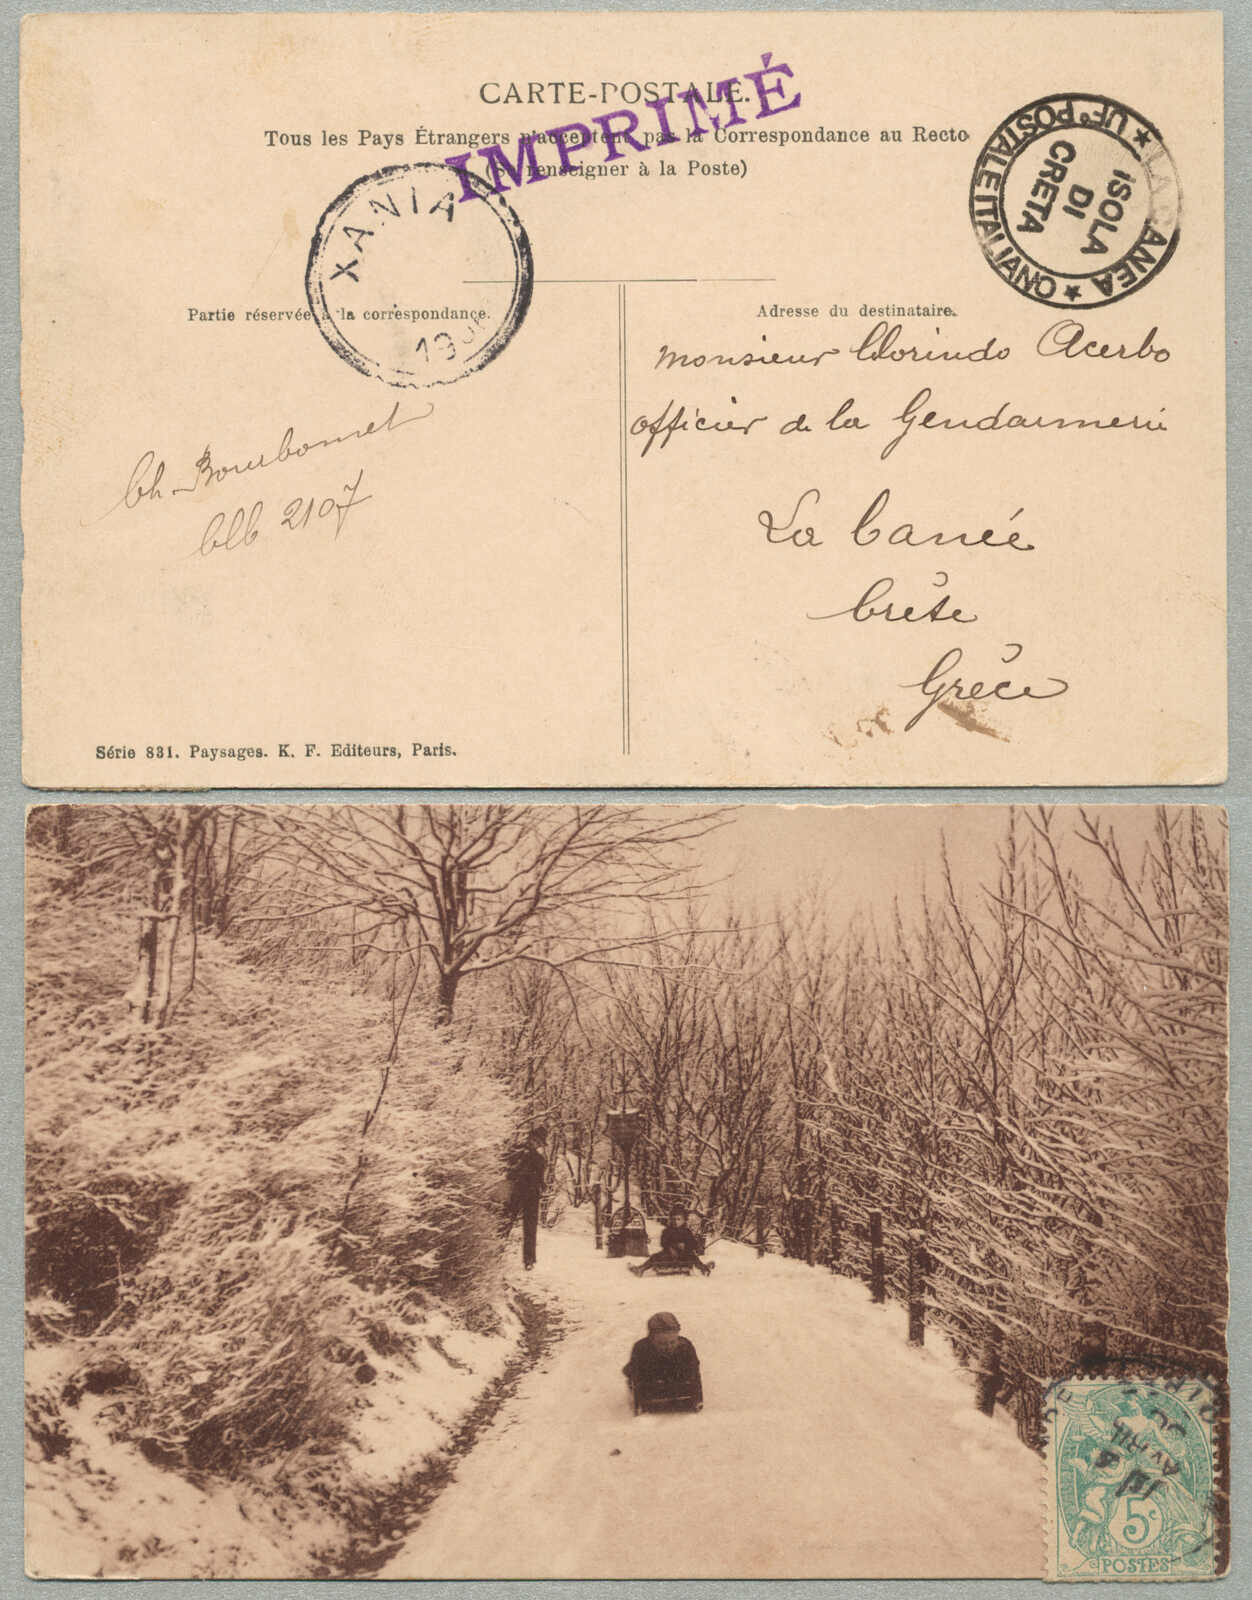 CARTE-POSTALE.
Tous les Pays Étrangers n'acceptent pas la Correspondance au Recto
(Se renseigner à la Poste)
IMPRIMÉ
XANIA
190
★ LA CANEA ★ UFº POSTALE ITALIANO
ISOLA
DI
CRETA
Partie réservée à la correspondance.
Adresse du destinataire.
Monsieur Clorindo Acerbo
Officier de la Gendarmerie
La Canée
Crète
Grèce
Ch. Bourbonnet
Clb 2107
Série 831. Paysages. K. F. Editeurs, Paris.
AVRIL
5c
POSTES